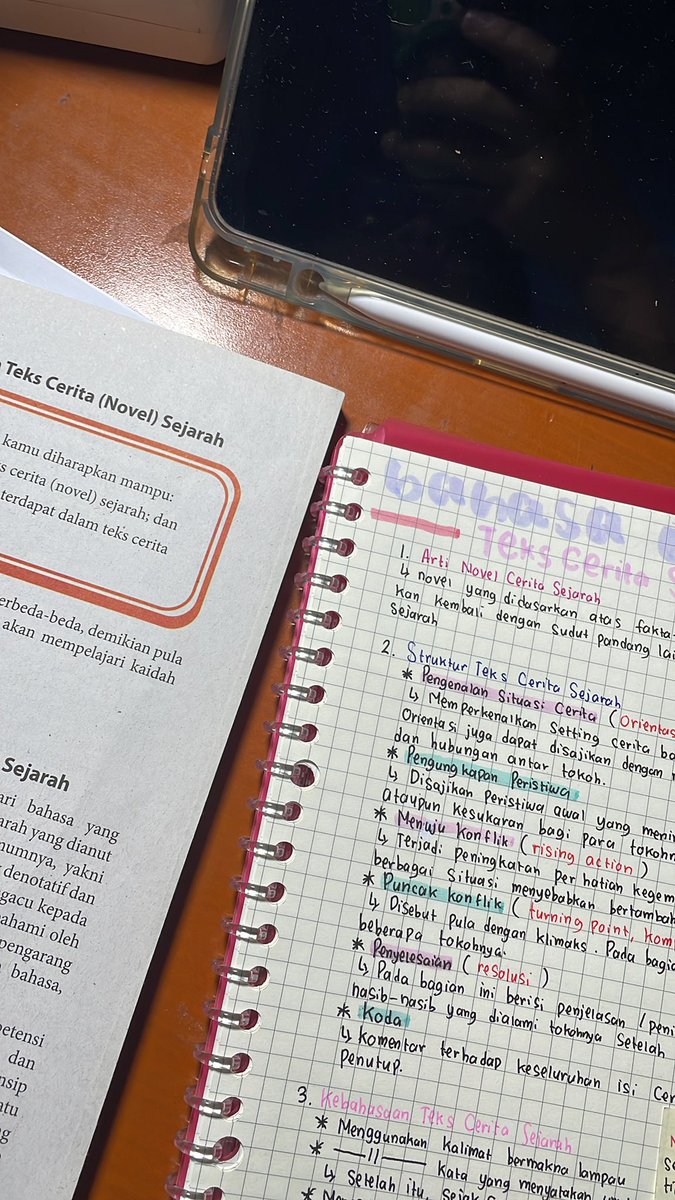 Teks Cerita (Novel) Sejarah
kamu diharapkan mampu:
cerita (novel) sejarah; dan
terdapat dalam teks cerita
erbeda-beda, demikian pula
akan mempelajari kaidah
Sejarah
ari bahasa yang
arah yang dianut
numnya, yakni
denotatif dan
ngacu kepada
ahami oleh
pengarang
bahasa,
petensi
dan
nsip
atu
ng
bahasa
Teks Cerita S
1. Arti Novel Cerita Sejarah
↳ novel yang didasarkan atas fakta-
kan kembali dengan sudut pandang lai
Sejarah
2. Struktur Teks Cerita Sejarah
* Pengenalan Situasi Cerita (Orientas
↳ Memperkenalkan Setting cerita ba
Orientasi juga dapat disajikan dengan
dan hubungan antar tokoh.
* Pengungkapan Peristiwa
↳ Disajikan Peristiwa awal yang meni
ataupun kesukaran bagi para tokohn
* Menuju Konflik (rising action)
↳ Terjadi Peningkatan Perhatian kegem
berbagai Situasi menyebabkan bertambah
* Puncak konflik (turning point, Kom
↳ Disebut Pula dengan klimaks. Pada bagia
beberapa tokohnya.
* Penyelesaian (resolusi)
↳ Pada bagian ini berisi penjelasan / peni
nasib-nasib yang dialami tokohnya Setelah
* Koda
↳ Komentar terhadap keseluruhan isi Cer
Penutup.
3. Kebahasaan Teks Cerita Sejarah
* Menggunakan kalimat bermakna lampau
* —〃— Kata yang menyatakan
↳ Setelah itu, Sejak